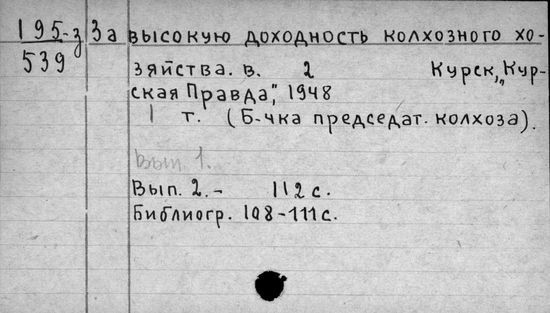 195-з За высокую доходность колхозного хо-
539 зяйства. в. 2 Курск, „Кур-
ская Правда“, 1948
1 т. (Б-чка председат. колхоза).
Вып. 1.
Вып. 2. - 112 с.
Библиогр. 108-111 с.